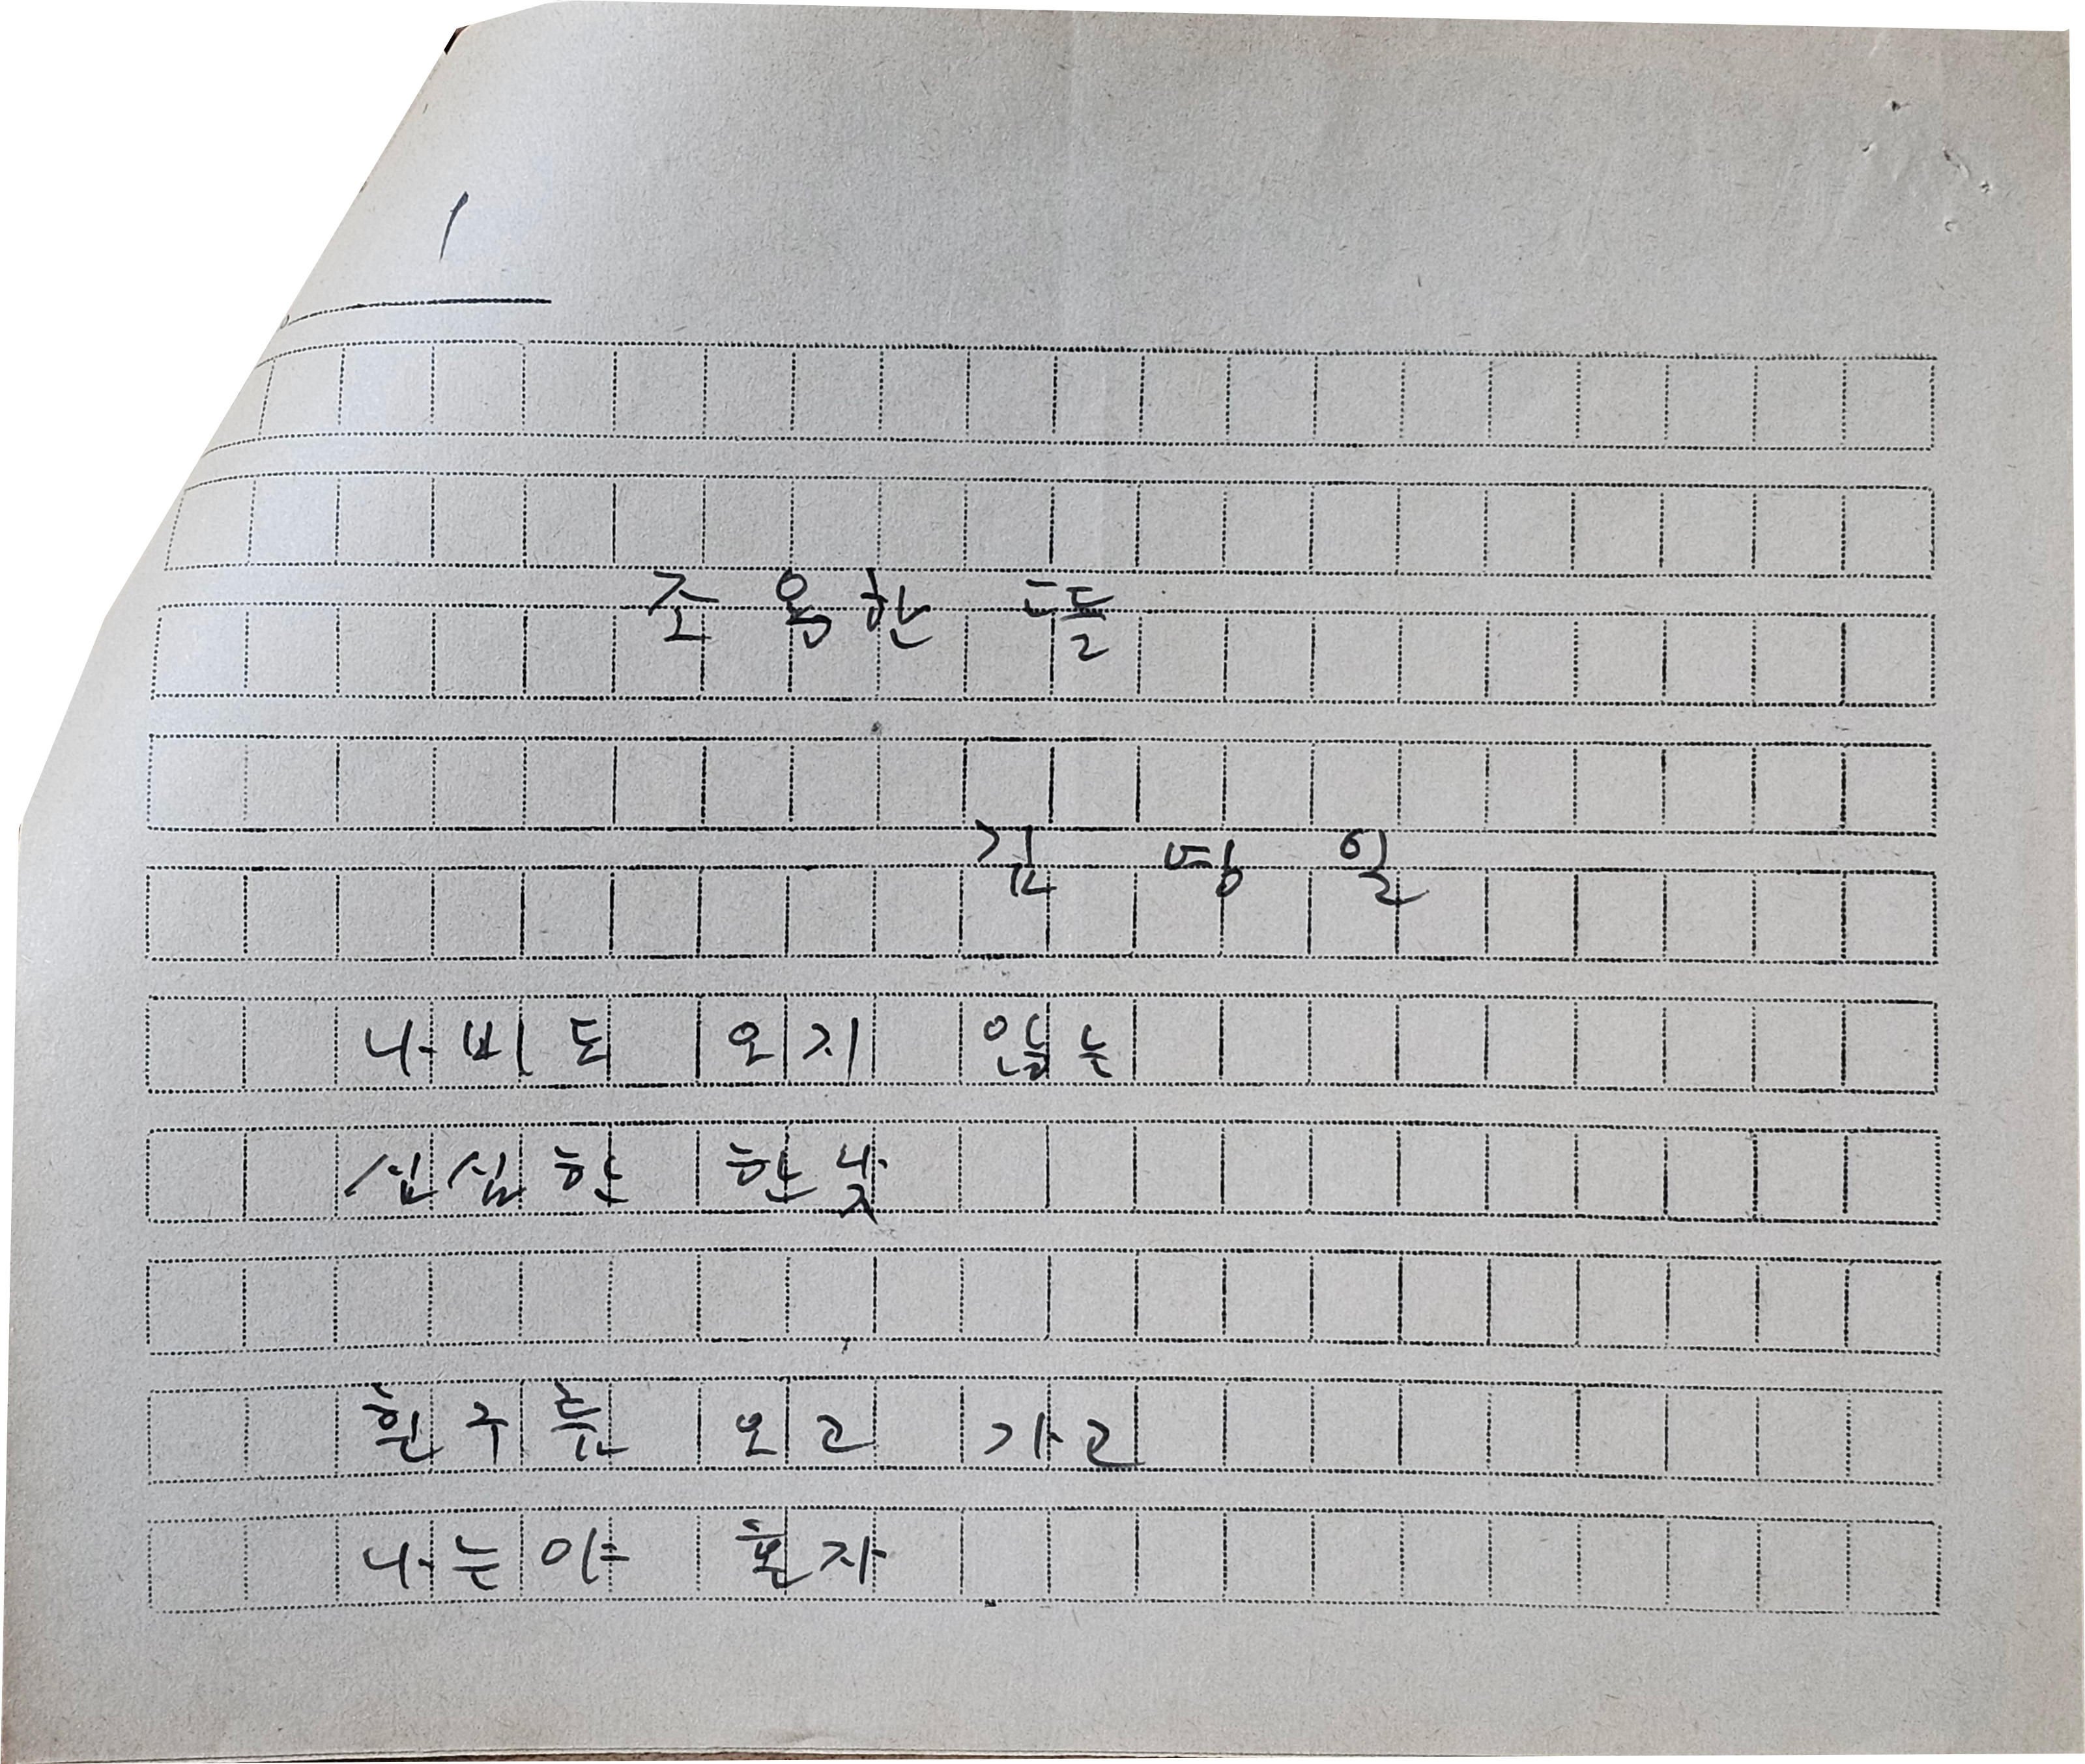 1
조용한 뜰
김 일
나비도 오지 않는
심심한 한낮
흰구름 오고 가고
나는야 혼자